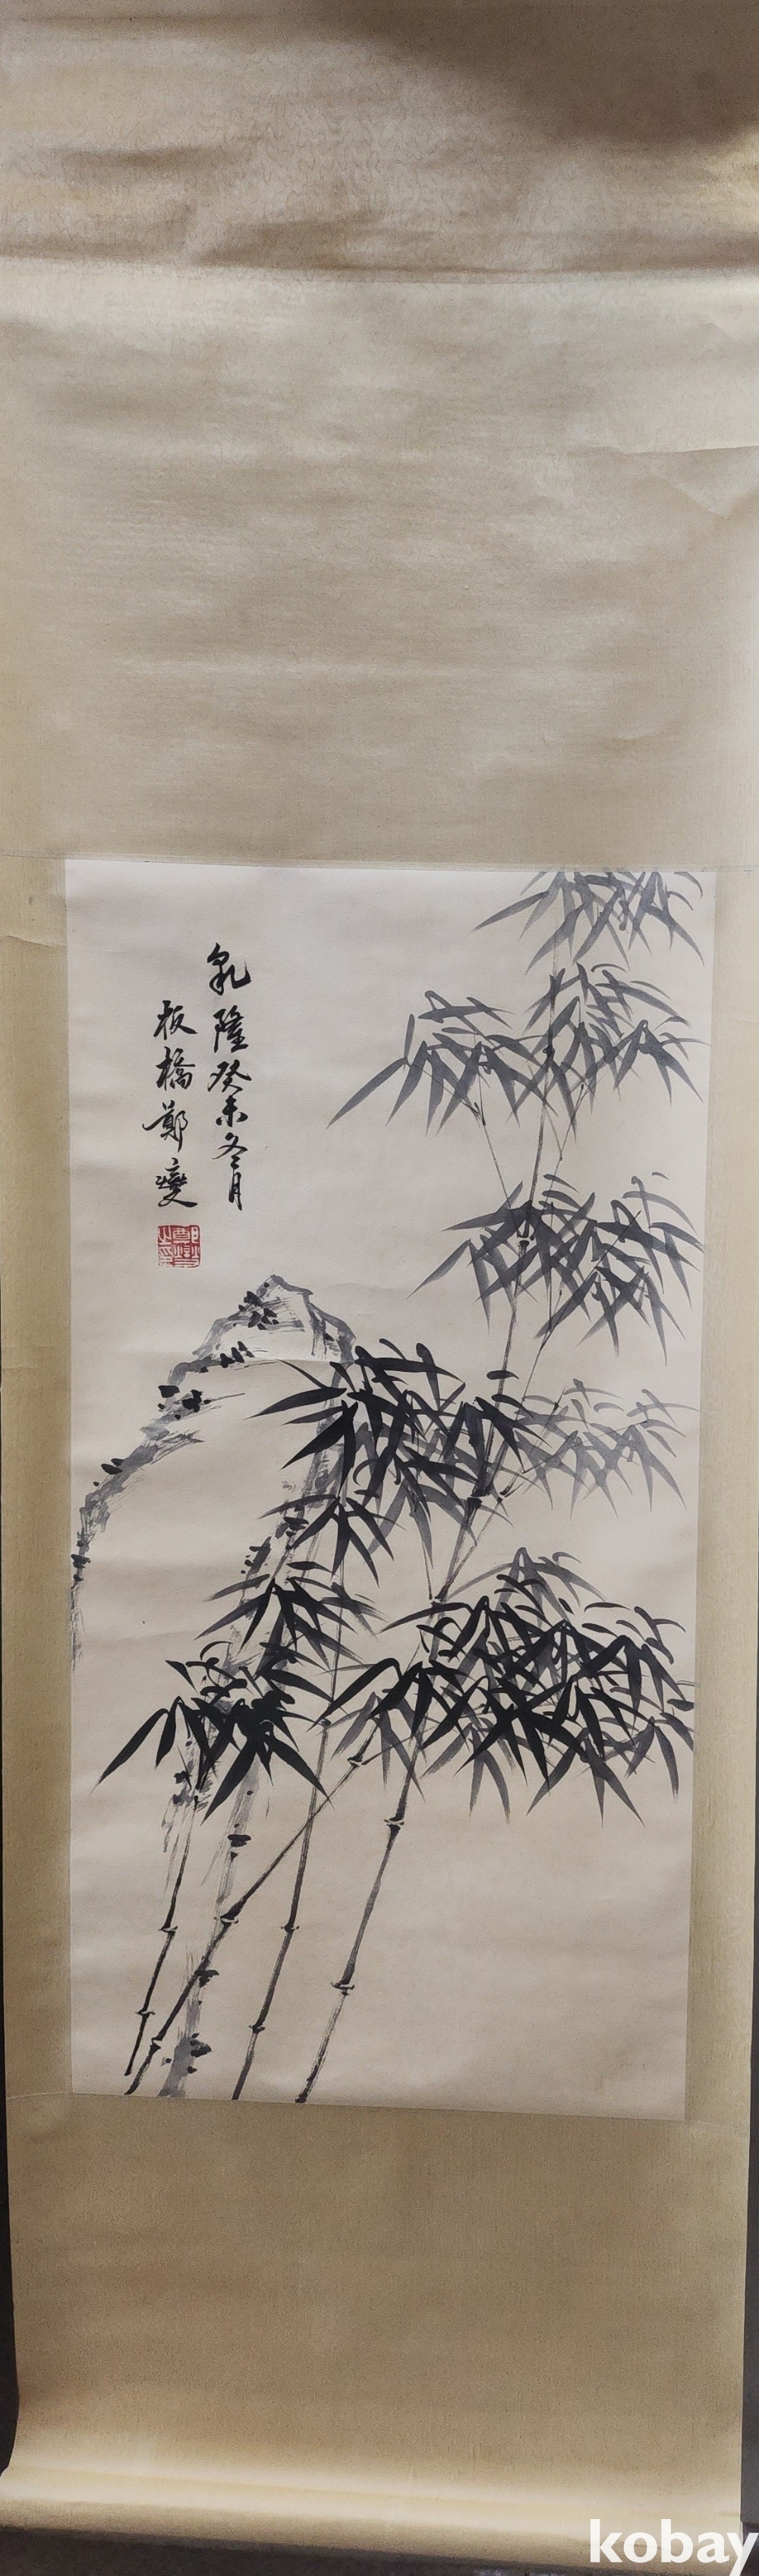 乾隆癸未冬月
板橋鄭燮
kobay